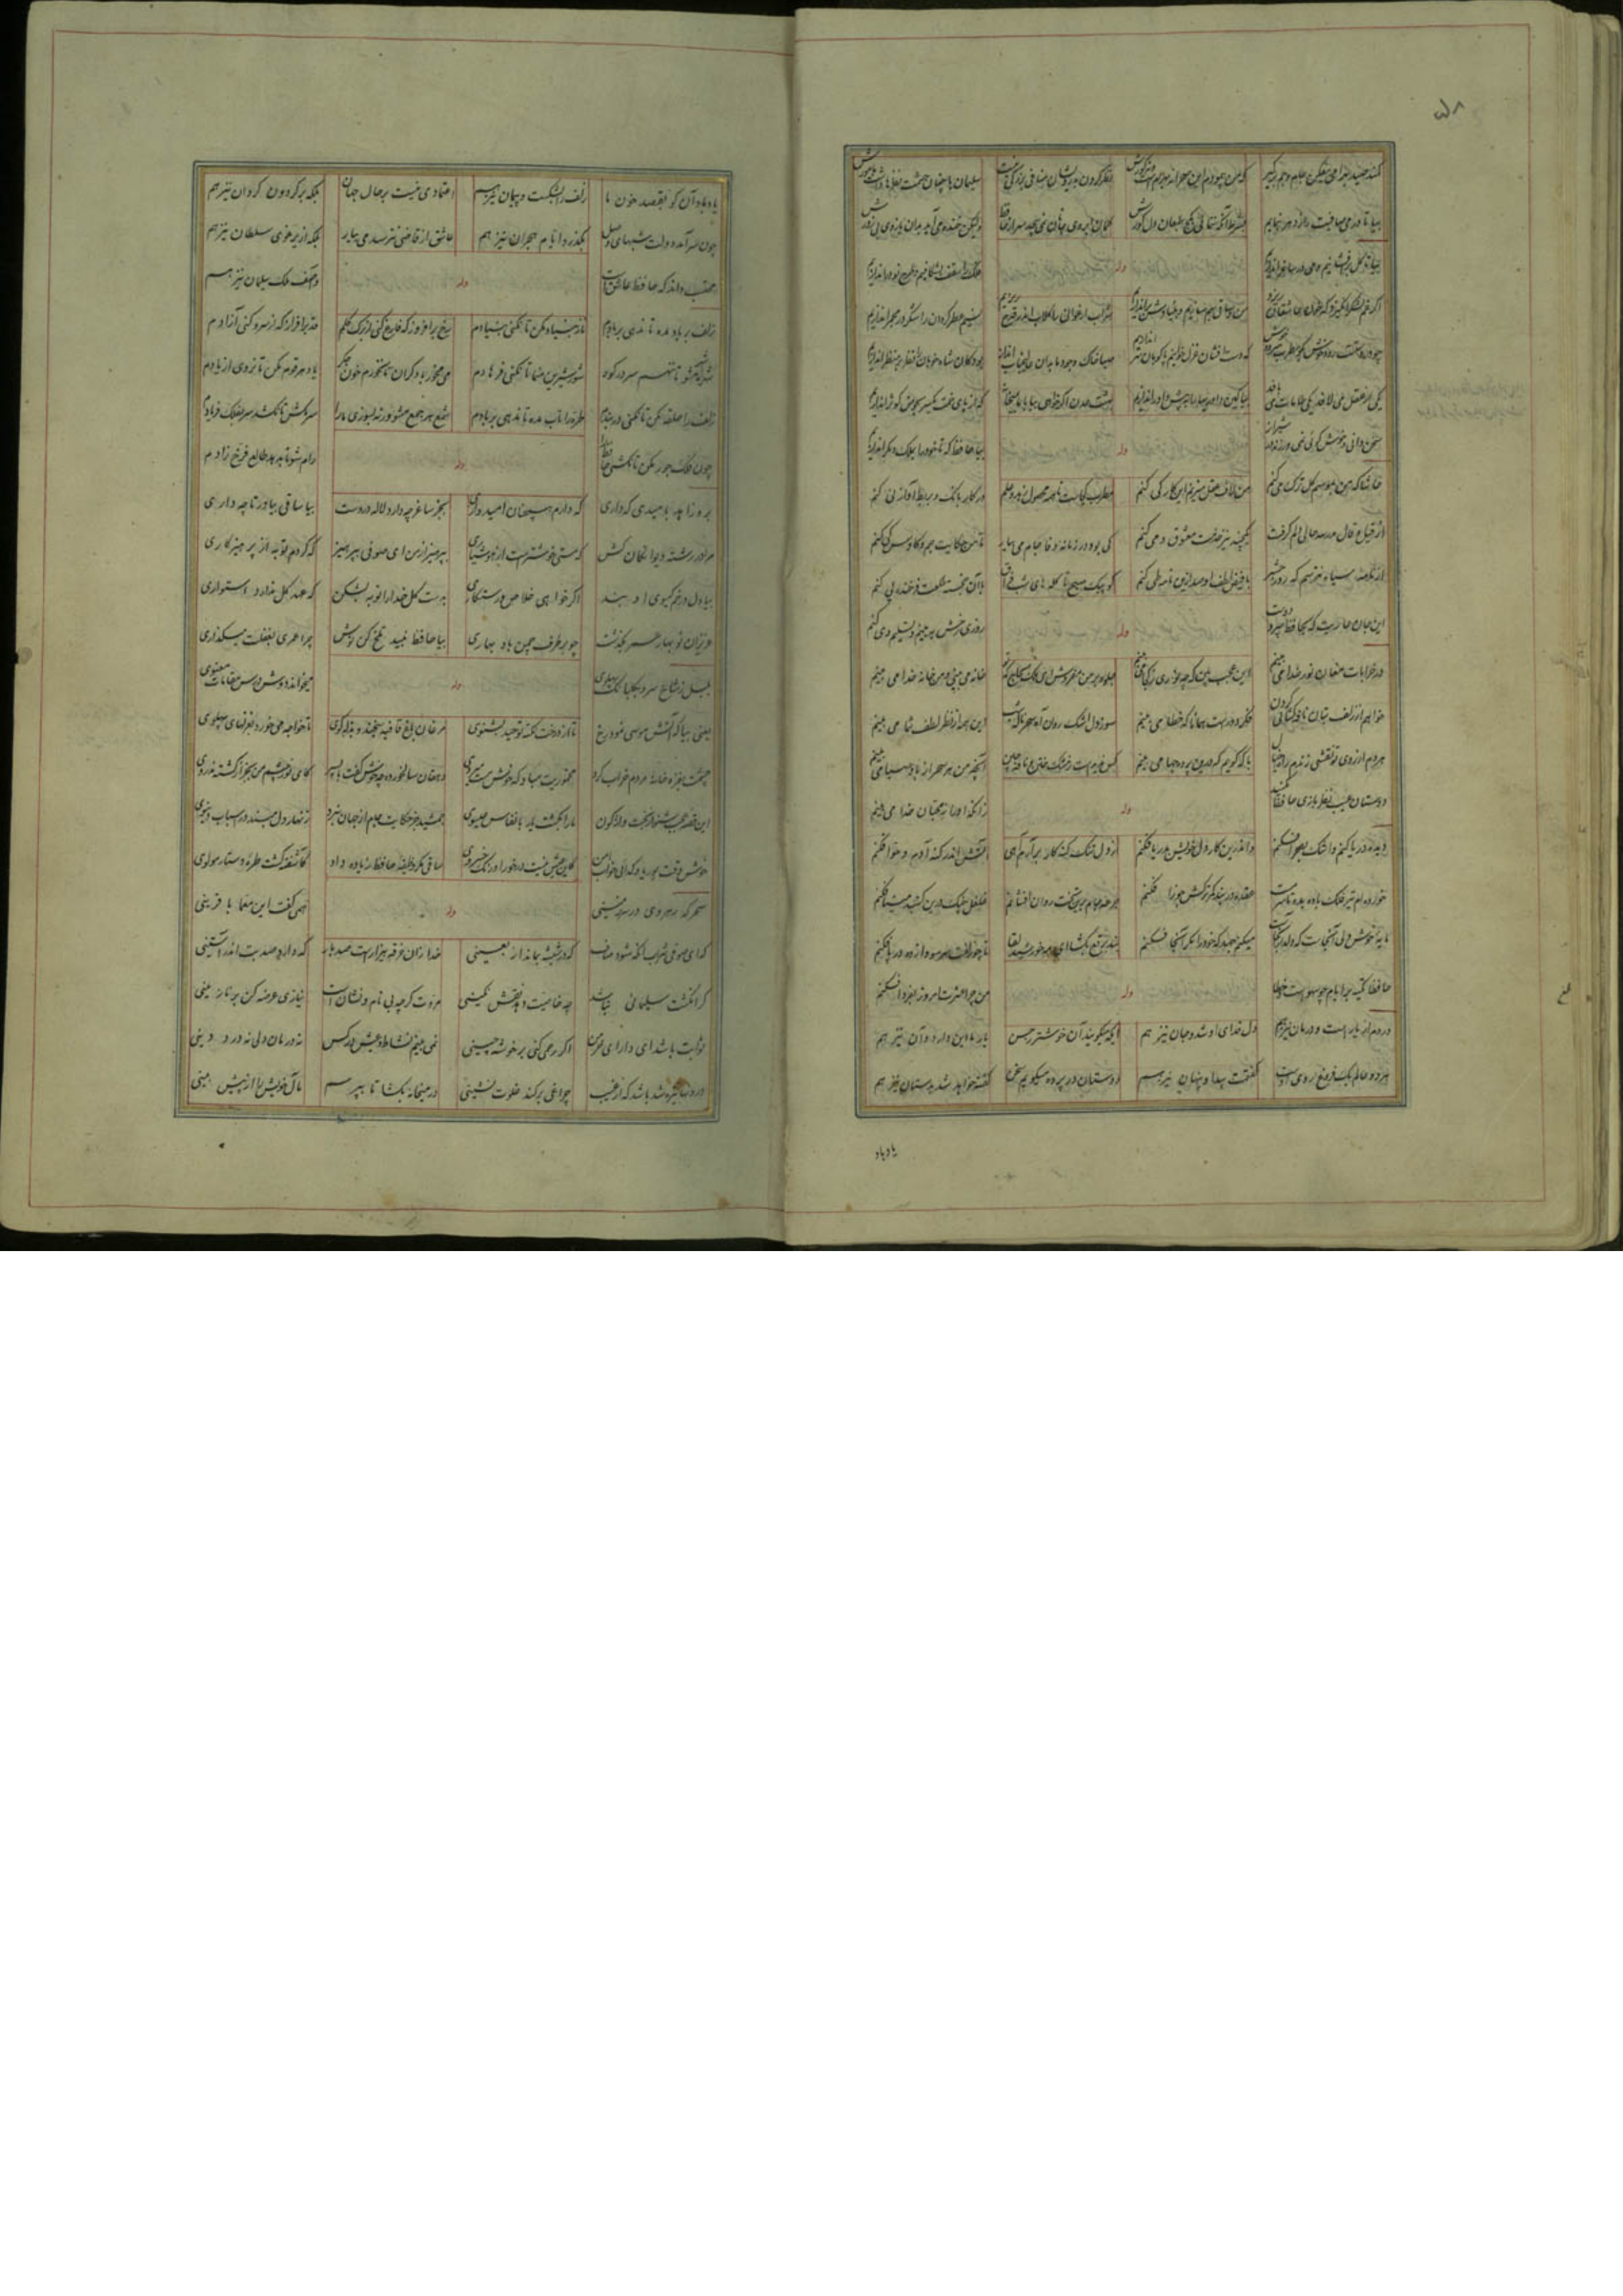 ۵۸
کمند صید بهرامی بیفکن جام جم برگیر که من پیمودم این صحرا نه بهرامست و نه گورش نظر کردن بدرویشان منافی بزرگی نیست سلیمان با چنان حشمت نظرها داشت با مورش
بیا تا در می صافیت راز دهر بنمایم بشرط آنکه ننمائی بکج طبعان دل کورش کمان ابروی جانان نمی پیچد سر از حافظ ولیکن خنده می آید بدان بازوی بی زورش
بیا تا گل برافشانیم و می در ساغر اندازیم وله فلک را سقف بشکافیم و طرح نو دراندازیم
اگر غم لشکر انگیزد که خون عاشقان ریزد من و ساقی بهم سازیم و بنیادش براندازیم شراب ارغوانی را گلاب اندر قدح ریزیم نسیم عطر گردان را شکر در مجمر اندازیم
چو در دستست رودی خوش بگو مطرب سرودی خوش که دست افشان غزل خوانیم و پاکوبان سر اندازیم صبا خاک وجود ما بدان عالیجناب انداز بود کان شاه خوبان را نظر بر منظر اندازیم
یکی از عقل می لافد یکی طامات می بافد بیا کین داوریها را به پیش داور اندازیم بهشت عدن اگر خواهی بیا با ما بمیخانه که از پای خمت یکسر بحوض کوثر اندازیم
سخن دانی و خوش گوئی نمی ورزند در شیراز وله بیا حافظ که تا خود را بملک دیگر اندازیم
حاشا که من بموسم گل ترک می کنم من لاف عقل میزنم این کار کی کنم مطرب کجاست تا همه محصول زهد و علم در کار بانگ بربط و آواز نی کنم
از قیل و قال مدرسه حالی دلم گرفت یکچند نیز خدمت معشوق و می کنم کی بود در زمانه وفا جام می بیار تا من حکایت جم و کاوس کی کنم
از نامه سیاه نترسم که روز حشر با فیض لطف او صد ازین نامه طی کنم کو پیک صبح تا گله های شب فراق با آن خجسته طلعت فرخنده پی کنم
این جان عاریت که بحافظ سپرد دوست وله روزی رخش ببینم و تسلیم وی کنم
در خرابات مغان نور خدا می بینم این عجب بین که چه نوری ز کجا می بینم جلوه بر من مفروش ای ملک الحاج که تو خانه می بینی و من خانه خدا می بینم
خواهم از زلف بتان نافه گشائی کردن فکر دورست همانا که خطا می بینم سوز دل اشک روان آه سحر ناله شب این همه از نظر لطف شما می بینم
هر دم از روی تو نقشی زندم راه خیال با که گویم که درین پرده چها می بینم کس ندیدست ز مشک ختن و نافه چین آنچه من هر سحر از باد صبا می بینم
دوستان عیب نظر بازی حافظ مکنید وله زانکه او را ز محبان خدا می بینم
دیده دریا کنم و اشک بصحرا فکنم و اندرین کار دل خویش بدریا فکنم از دل تنگ گنه کار برآرم آهی کاتش اندر گنه آدم و حوا فکنم
خورده ام تیر فلک باده بده تا سرمست عقده در بند کمر ترکش جوزا فکنم جرعه جام برین تخت روان افشانم غلغل چنگ درین گنبد مینا فکنم
مایه خوشدلی آنجاست که دلدار آنجاست میکنم جهد که خود را مگر آنجا فکنم بند برقع بگشا ای مه خورشید لقا تا چو زلفت سر سودا زده در پا فکنم
حافظا تکیه بر ایام چو سهوست و خطا وله من چرا عشرت امروز بفردا فکنم
دردم از یارست و درمان نیز هم دل فدای او شد و جان نیز هم اینکه میگویند آن خوشتر ز حسن یار ما این دارد و آن نیز هم
هر دو عالم یک فروغ روی اوست گفتمت پیدا و پنهان نیز هم دوستان در پرده میگویم سخن گفته خواهد شد بدستان نیز هم
یاد باد
یاد باد آن کو بقصد خون ما زلف را بشکست و پیمان نیز هم اعتمادی نیست بر حال جهان بلکه بر گردون گردان نیز هم
چون سر آمد دولت شبهای وصل بگذرد ایام هجران نیز هم عاشق از قاضی نترسد می بیار بلکه از یرغوی سلطان نیز هم
محتسب داند که حافظ عاشق است وله و آصف ملک سلیمان نیز هم
زلف بر باد مده تا ندهی بر بادم ناز بنیاد مکن تا نکنی بنیادم رخ برافروز که فارغ کنی از برگ گلم قد برافراز که از سرو کنی آزادم
شهره شهر مشو تا ننهم سر در کوه شور شیرین منما تا نکنی فرهادم می مخور با دگران تا نخورم خون جگر یاد هر قوم مکن تا نروی از یادم
زلف را حلقه مکن تا نکنی در بندم طره را تاب مده تا ندهی بر بادم شمع هر جمع مشو ورنه بسوزی ما را سر مکش تا نکشد سر بفلک فریادم
چون فلک جور مکن تا نکشی حافظ را وله رام شو تا بدهد طالع فرخ زادم
برو زاهد بامیدی که داری که دارم همچنان امیدواری بجز ساغر چه دارد لاله در دست بیا ساقی بیاور تا چه داری
مرا در رشته دیوانگان کش که مستی خوشترست از هوشیاری بپرهیز از من ای صوفی بپرهیز که کردم توبه از پرهیزکاری
بیا دل در خم گیسوی او بند اگر خواهی خلاص و رستگاری بوقت گل خدا را توبه بشکن که عهد گل ندارد استواری
عزیزان نوبهار عمر بگذشت چو بر طرف چمن باد بهاری بیا حافظ نبید تلخ کن نوش چرا عمری بغفلت میگذاری
بلبل ز شاخ سرو بگلبانگ پهلوی وله میخواند دوش درس مقامات معنوی
یعنی بیا که آتش موسی نمود رخ تا از درخت نکته توحید بشنوی مرغان باغ قافیه سنجند و بذله گوی تا خواجه می خورد بغزلهای پهلوی
چشمت بغمزه خانه مردم خراب کرد مخموریت مباد که خوش مست میروی دهقان سالخورده چه خوش گفت با پسر کای نور چشم من بجز از کشته ندروی
این قصه عجب شنو از بخت واژگون ما را بکشت یار بانفاس عیسوی جمشید جز حکایت جام از جهان نبرد زنهار دل مبند در اسباب دنیوی
خوش وقت بوریا و گدائی و خواب امن کاین عیش نیست در خور اورنگ خسروی ساقی مگر وظیفه حافظ زیاده داد کاشفته گشت طره دستار مولوی
سحرگه رهروی در سرزمینی وله همی گفت این معما با قرینی
که ای صوفی شراب آنگه شود صاف که در شیشه بماند اربعینی خدا زان خرقه بیزارست صد بار که دارد صد بت اندر آستینی
گر انگشت سلیمانی نباشد چه خاصیت دهد نقش نگینی مروت گرچه بی نام و نشان است نیازی عرضه کن بر نازنینی
ثوابت باشد ای دارای خرمن اگر رحمی کنی بر خوشه چینی نمی بینم نشاط و عیش در کس نه درمان دلی نه درد دینی
درونها تیره شد باشد که از غیب چراغی بر کند خلوت نشینی در میخانه بگشا تا بپرسم مآل خویش را از پیش بینی